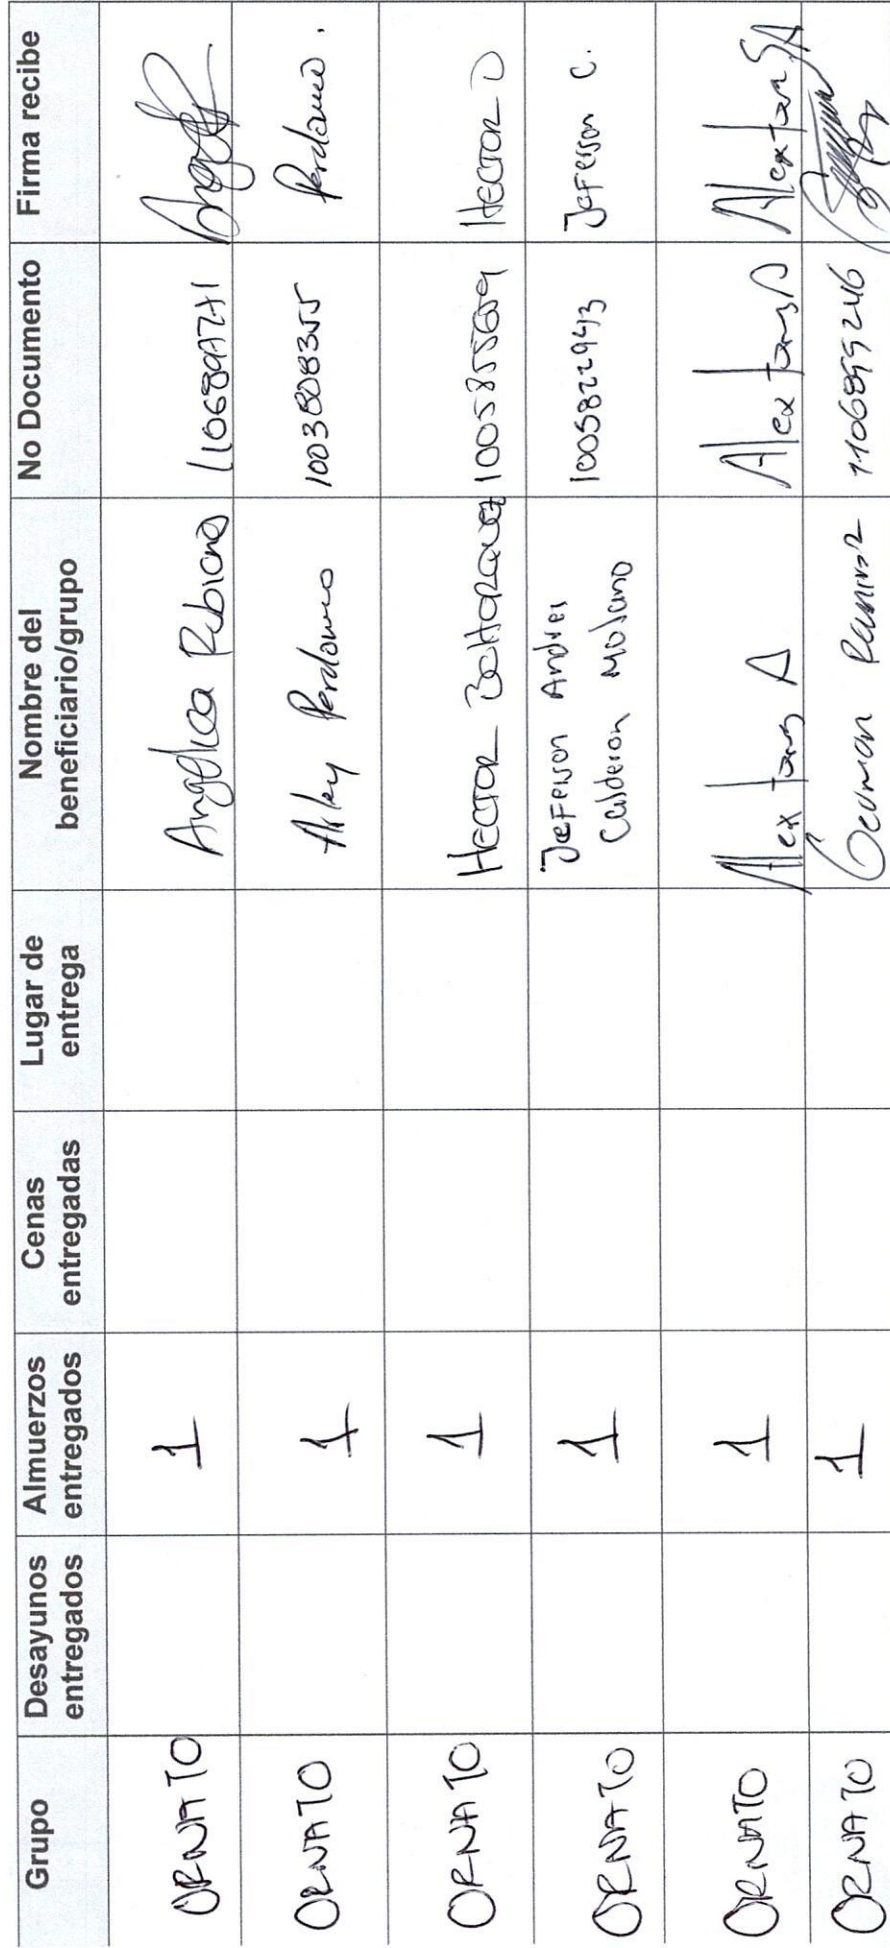 Grupo
Desayunos
entregados
Almuerzos
entregados
Cenas
entregadas
Lugar de
entrega
Nombre del
beneficiario/grupo
No Documento
Firma recibe
ORNATO
1
Angelica Rubiano
ORNATO
1
Arley Perdomo
1003808355
Perdomo.
ORNATO
1
HECTOR
1005855659
HECTOR D
ORNATO
1
Jefferson Andrei
Calderon Molano
1005822943
Jeferson C.
ORNATO
1
Alex
Alex
Alex
ORNATO
1
German Ramirez
1106899246